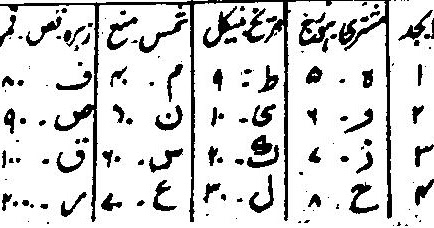 ابجد | مشتری | مریخ | شمس | زہرہ
۱ | ہ . ۵ | ط : ۹ | م . ۴۰ | ف ۸۰
۲ | و . ۶ | ی . ۱۰ | ن ۵۰ | ص . ۹۰
۳ | ز . ۷ | ک . ۲۰ | س . ۶۰ | ق . ۱۰۰
۴ | ح . ۸ | ل . ۳۰ | ع . ۷۰ | ر . ۲۰۰